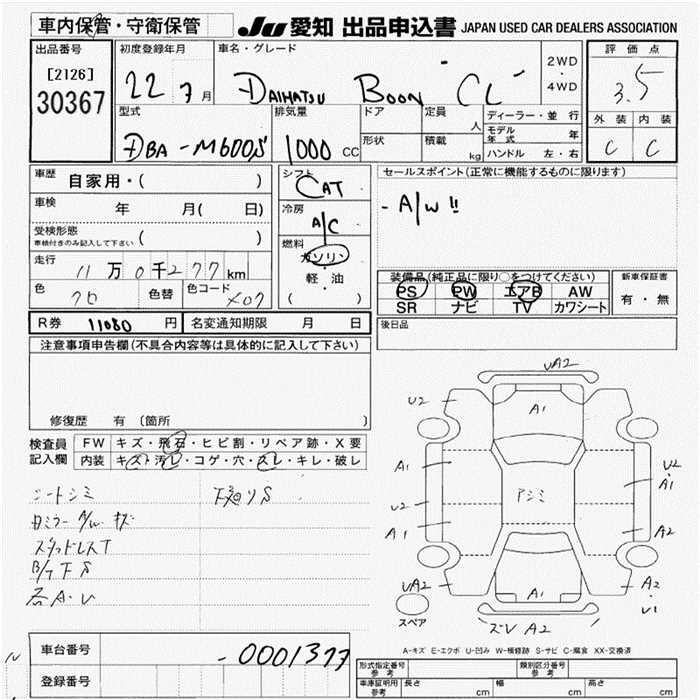 車内保管・守衛保管
JU 愛知 出品申込書 JAPAN USED CAR DEALERS ASSOCIATION
出品番号
[2126]
30367
初度登録年月
22 7月
車名・グレード
DAIHATSU BOON "CL"
2WD
・
4WD
評価点
3.5
外装 内装
C C
型式
DBA-M600S
排気量
1000 CC
ドア
形状
定員
人
積載
kg
ディーラー・並行
モデル年式 年
ハンドル 左・右
車歴 自家用・( )
車検 年 月( 日)
受検形態
車検付きのみ記入して下さい ( )
走行 11万0千277km
色 クロ 色替 色コード X07
シフト
CAT
冷房
A/C
燃料
ガソリン
・
軽・油
( )
セールスポイント(正常に機能するものに限ります)
- A/W !!
装備品(純正品に限り○をつけてください)
PS PW エアB AW
SR ナビ TV カワシート
新車保証書
有・無
後日品
R券 11080円 名変通知期限 月 日
注意事項申告欄(不具合内容等は具体的に記入して下さい)
修復歴 有 〔箇所 〕
検査員記入欄
FW キズ・飛石・ヒビ割・リペア跡・X要
内装 キズ・汚レ・コゲ・穴・スレ・キレ・破レ
シートシミ
下廻りS
スタッドレスT
各A・U
VA2
U2
A1
A1
U2
A1
UA2
アシミ
U2
A1
A2
A2
U1
A1
スペア
ズレ A2
A-キズ E-エクボ U-凹み W-補修跡 S-サビ C-腐食 XX-交換済
車台番号 -0001377
登録番号
型式指定番号 参考
類別区分番号 参考
車庫証明用 参考 長さ cm 幅 cm 高さ cm